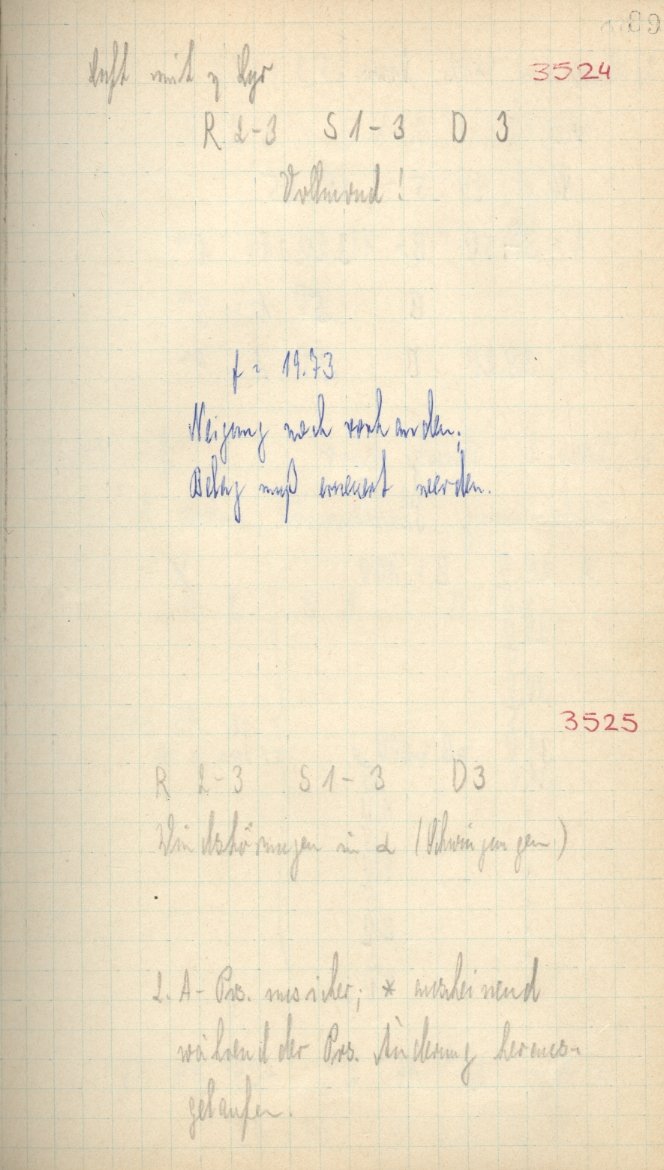 89
mit γ Lyr
3524
R 2-3 S 1-3 D 3
Vollmond!
f = 19.73
Neigung noch vorhanden;
Belag muß erneuert werden.
3525
R 2-3 S 1-3 D3
Windstörungen in α (Schwingungen)
2. A-Pos. unsicher; * anscheinend
während der Pos. Änderung heraus-
gelaufen.